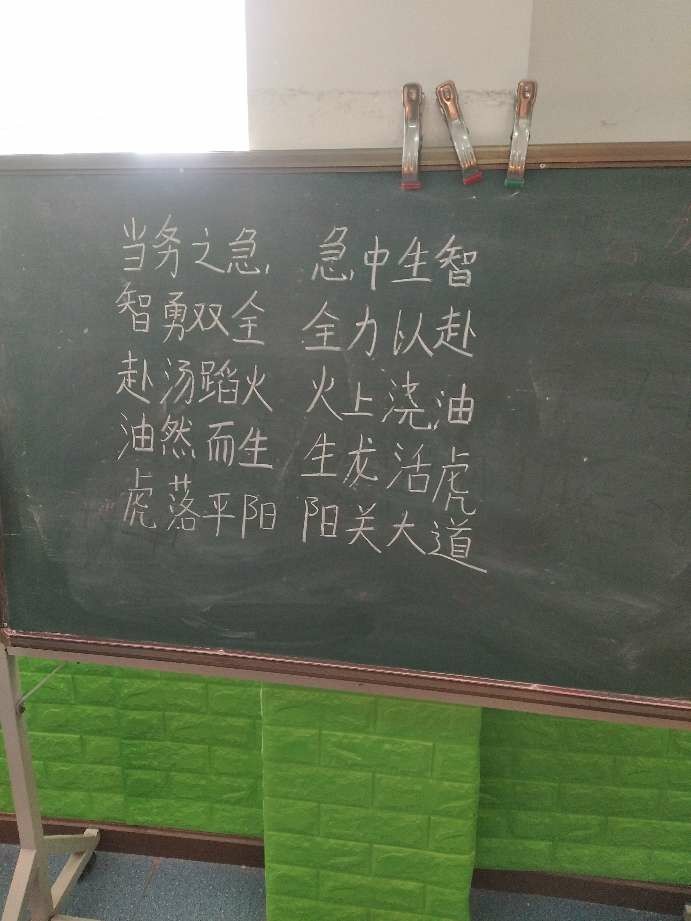 当务之急, 急中生智
智勇双全 全力以赴
赴汤蹈火 火上浇油
油然而生 生龙活虎
虎落平阳 阳关大道